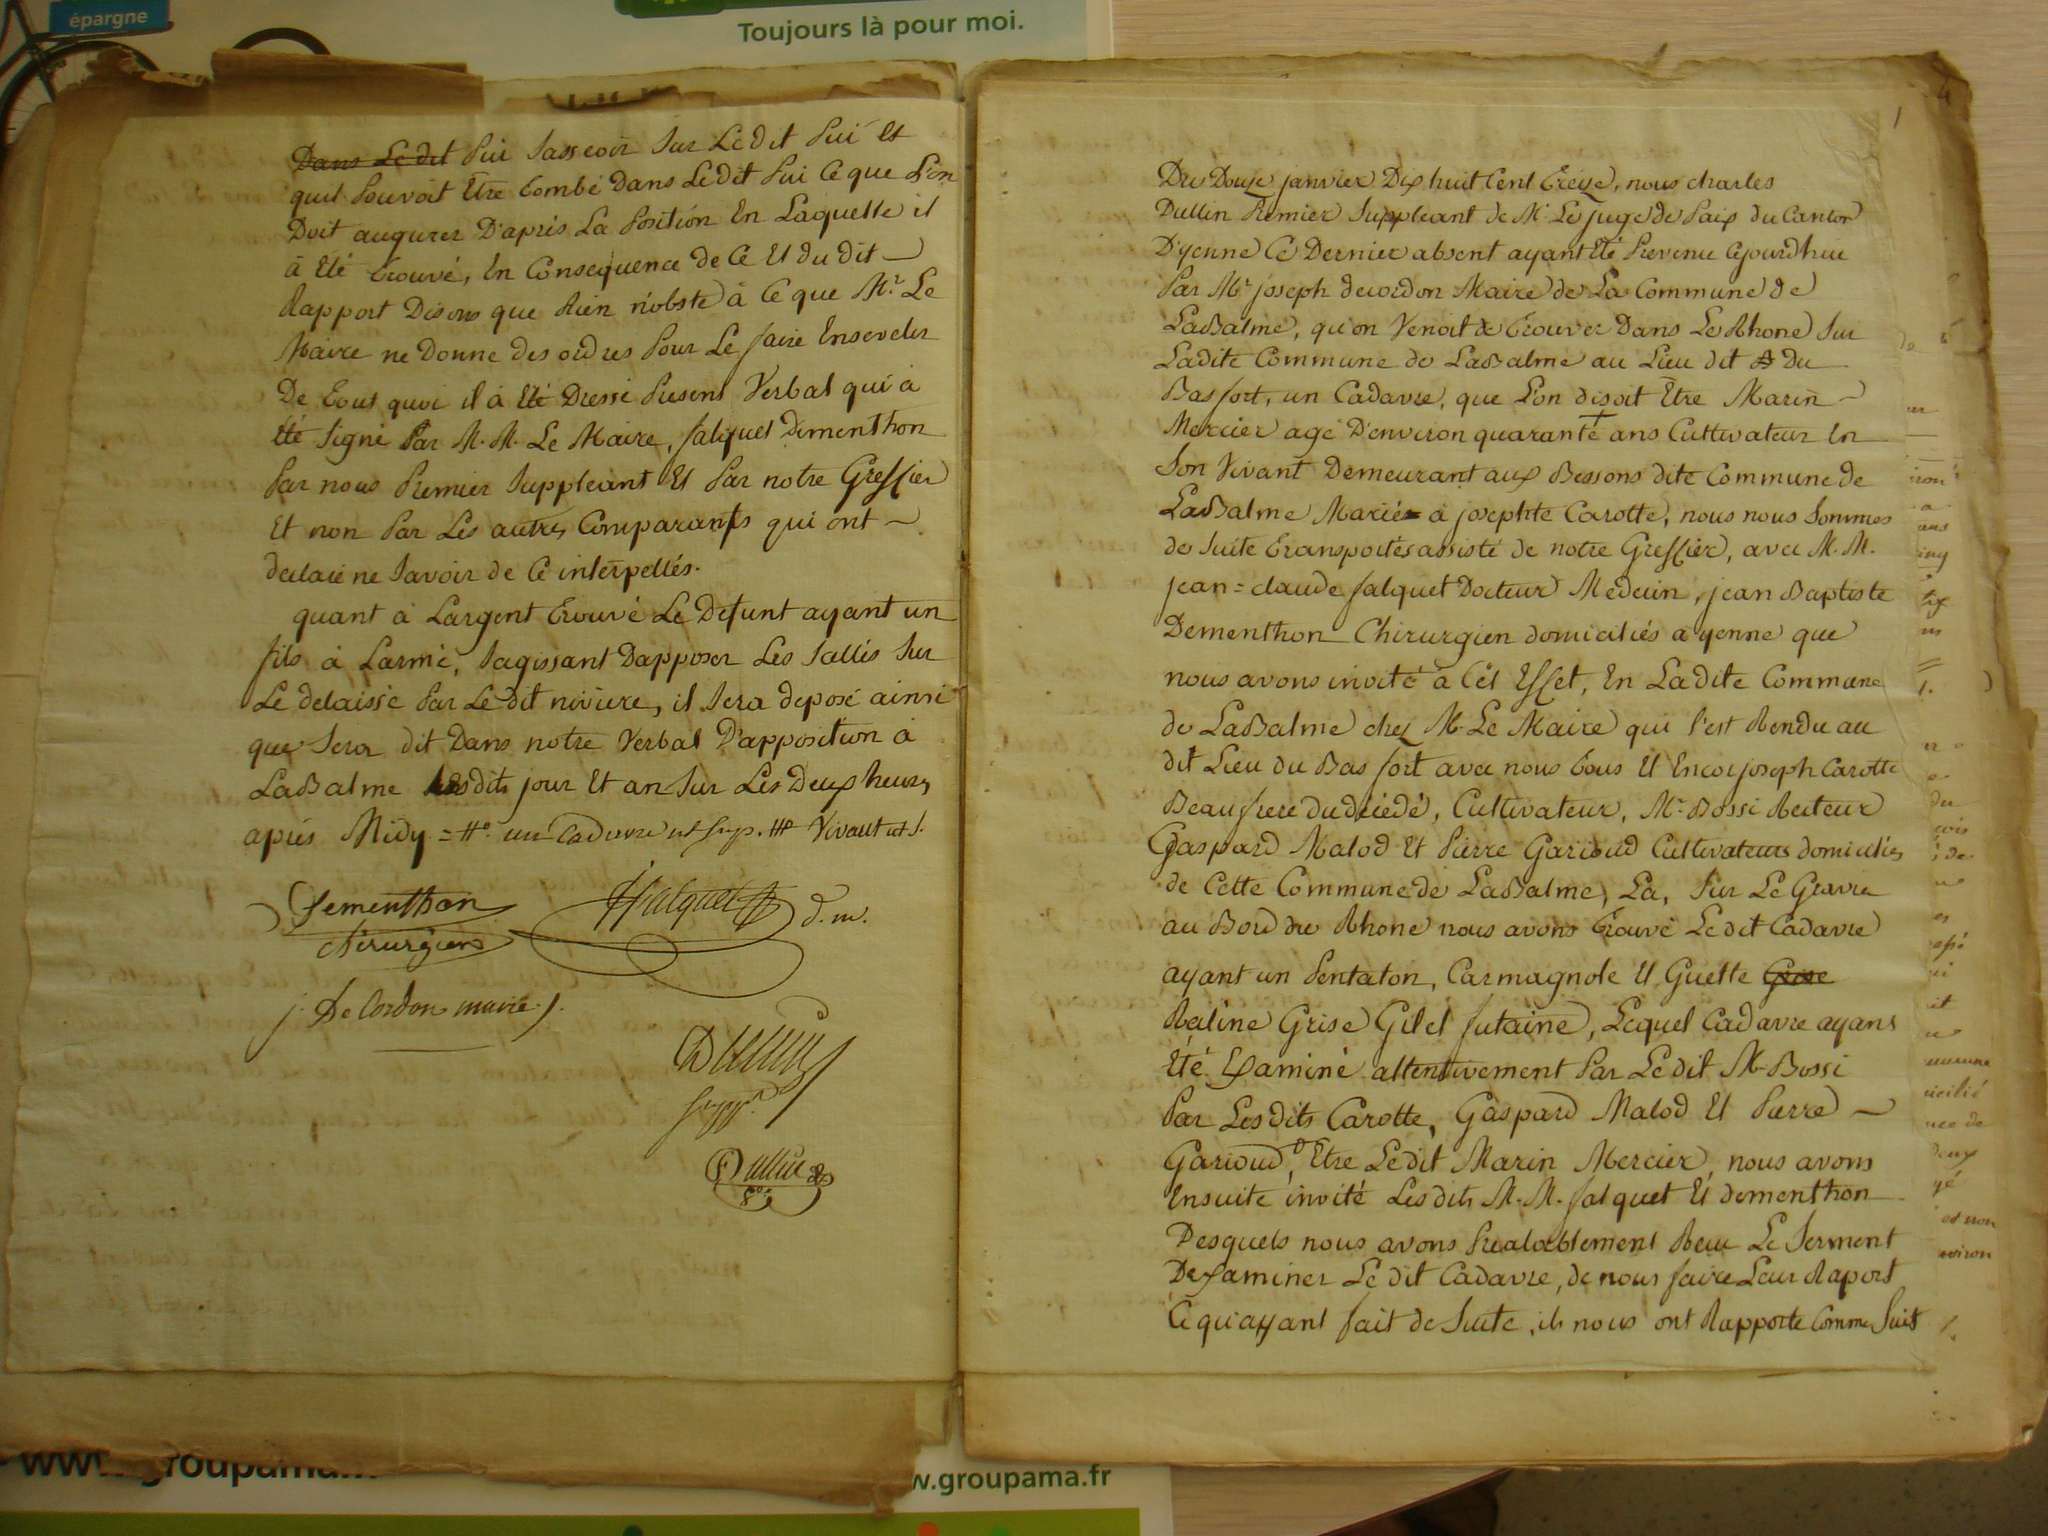 épargne
Toujours là pour moi.
Dans Le dit Pui Sasseoir Sur Le dit Pui Et
quil Pouvoit Etre tombé Dans Le dit Pui Ce que L'on
Doit augurer D'après La Position En Laquelle il
à Eté trouvé, En Consequence de Ce Et du dit
Rapport Disons que Rien n'obste à Ce que Mr. Le
Maire ne Donne des ordres Pour Le faire Ensevelir
De tout quoi il à Eté Dressé Present Verbal qui à
Eté Signé Par M. M. Le Maire, falquet Dementhon
Par nous Premier Suppleant Et Par notre Greffier
Et non Par Les autres Comparants qui ont
declaré ne Savoir de Ce interpellés.
quant à Largent trouvé Le Defunt ayant un
fils à Larmé, Sagissant Dapposer Les Sallés Sur
Le delaissé Par Le dit nivière, il Sera deposé ainsi
que Sera dit Dans notre Verbal D'apposition à
LaBalme Lesdits jour Et an Sur Les Deux heures
après Midy = un Cadavre Vivant
Dementhon falquet d. m.
chirurgien
j. De Cordon maire
Supp.
Dullin
1
4
Du Douze janvier Dix huit Cent treize, nous charles
Dullin Premier Suppleant de Mr Le juge de Paix du Canton
D'yenne Ce Dernier absent ayant Eté Prevenu Cejourdhui
Par Mr joseph decordon Maire de La Commune de
LaBalme, qu'on Venoit de trouver Dans Le Rhone Sur
Ladite Commune de LaBalme au Lieu dit Du
Bas fort, un Cadavre, que L'on disoit Etre Marin
Mercier agé D'environ quarante ans Cultivateur En
Son Vivant Demeurant aux Bessons dite Commune de
LaBalme Marié à josephte Carotte, nous nous Sommes
de Suite transportés assisté de notre Greffier, avec M. M.
jean=claude falquet Docteur Medecin, jean Baptiste
Dementhon Chirurgien domiciliés à yenne que
nous avons invité à Cét Effet, En Ladite Commune
de LaBalme chez M. Le Maire qui s'est Rendu au
dit Lieu du Bas fort avec nous tous Et Encor joseph Carotte
Beaufrere du décédé, Cultivateur, Mr. Bossi Recteur
Gaspard Malod Et Pierre Garioud Cultivateurs domiciliés
de Cette Commune de LaBalme, La, Sur Le Gravié
au Bord du Rhone nous avons trouvé Le dit Cadavre
ayant un Pentalon, Carmagnole Et Guette Grise
Ratine Grise Gilet futaine, Lequel Cadavre ayant
Eté Examiné attentivement Par Le dit M. Bossi
Par Lesdits Carotte, Gaspard Malod Et Pierre
Garioud, Etre Ledit Marin Mercier, nous avons
Ensuite invité Lesdits M. M. falquet Et dementhon
Desquels nous avons Prealablement Reçu Le Serment
Dexaminer Le dit Cadavre, de nous faire Leur Raport
Ce qu'ayant fait de Suite, ils nous ont Rapporté Comme Suit
www.groupama
w.groupama.fr